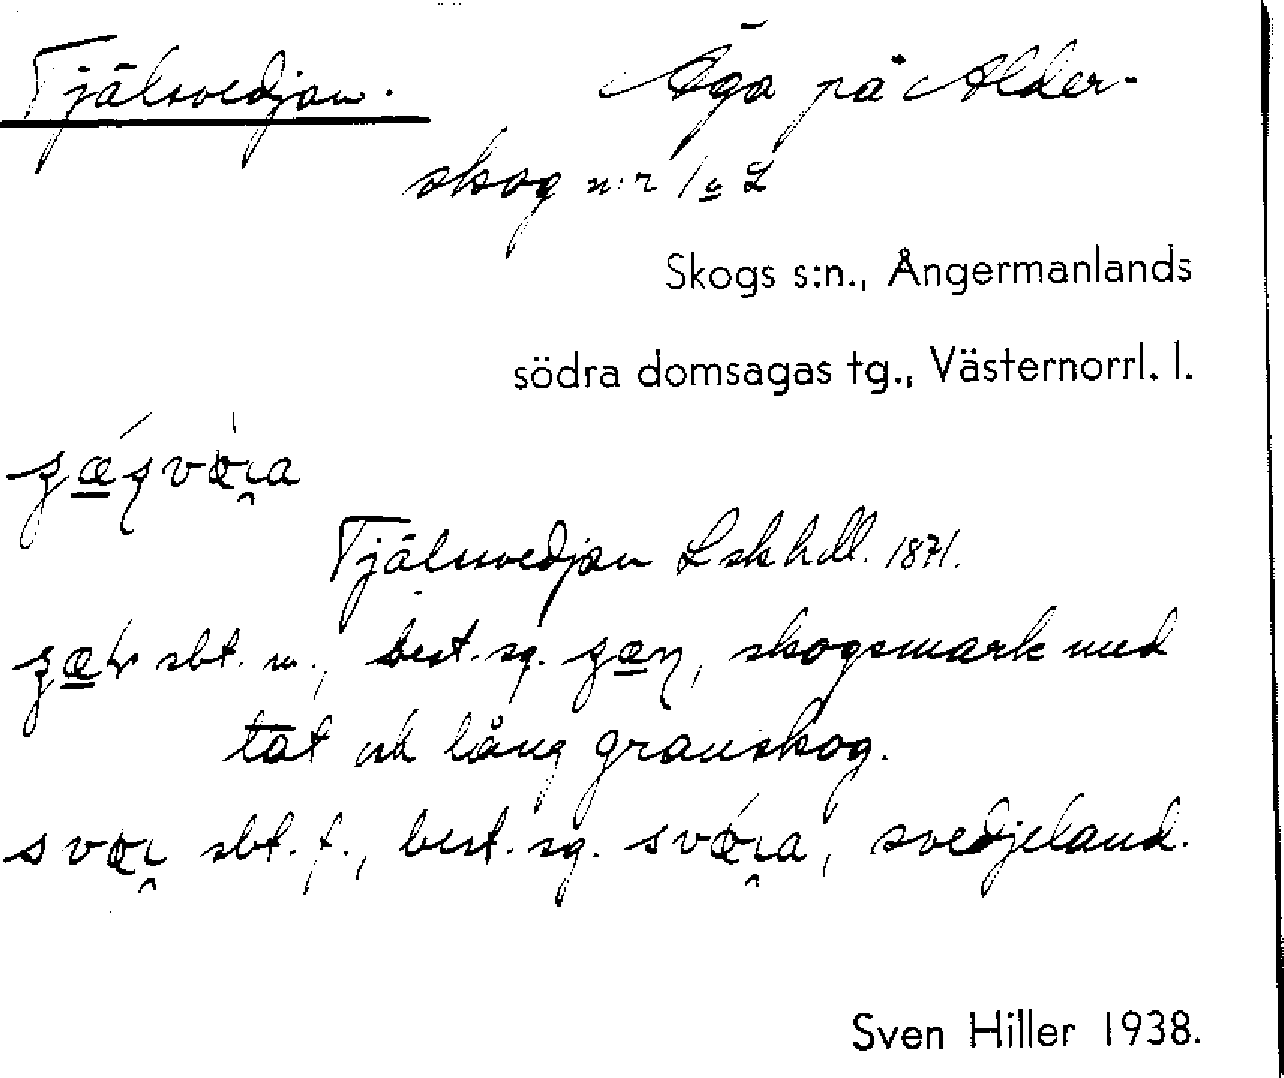 Tjälsvedjan. Äga på Alder-
skog n:r 1
Skogs s:n., Ångermanlands
södra domsagas tg., Västernorrl. l.
Tjälsvedjan Lskhdl. 1871.
sbt. m., best. sg. skogsmark med
tät och lång granskog.
sbt. f., best. sg. svedjeland.
Sven Hiller 1938.